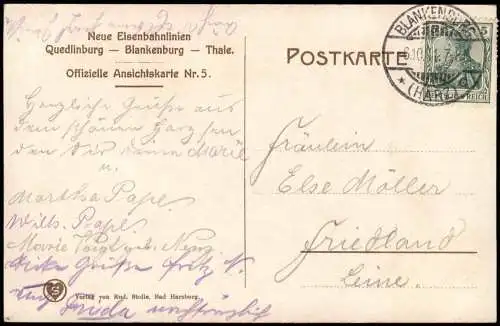 Neue Eisenbahnlinien
Quedlinburg — Blankenburg — Thale.
Offizielle Ansichtskarte Nr. 5.
POSTKARTE
BLANKENBURG
(HARZ)
5
REICH
Herzliche Grüße aus
dem schönen Harz
senden Dir Deine Marie
u.
Martha Pape
Wilh. Pape.
Marie Voigt geb.
Grüße Fritz
Frieda
Fräulein
Else Möller
Friedland
Leine.
Verlag von Rud. Stolle, Bad Harzburg.